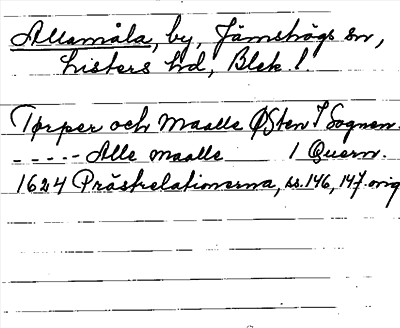 Allamåla, by, Jämshögs sn,
Listers hd, Blek. l.
Tørper och Maalle Østen I Sognen.
- - - - - Alle maalle 1 Quern.
1624 Prästrelationerna, ss. 146, 147. orig